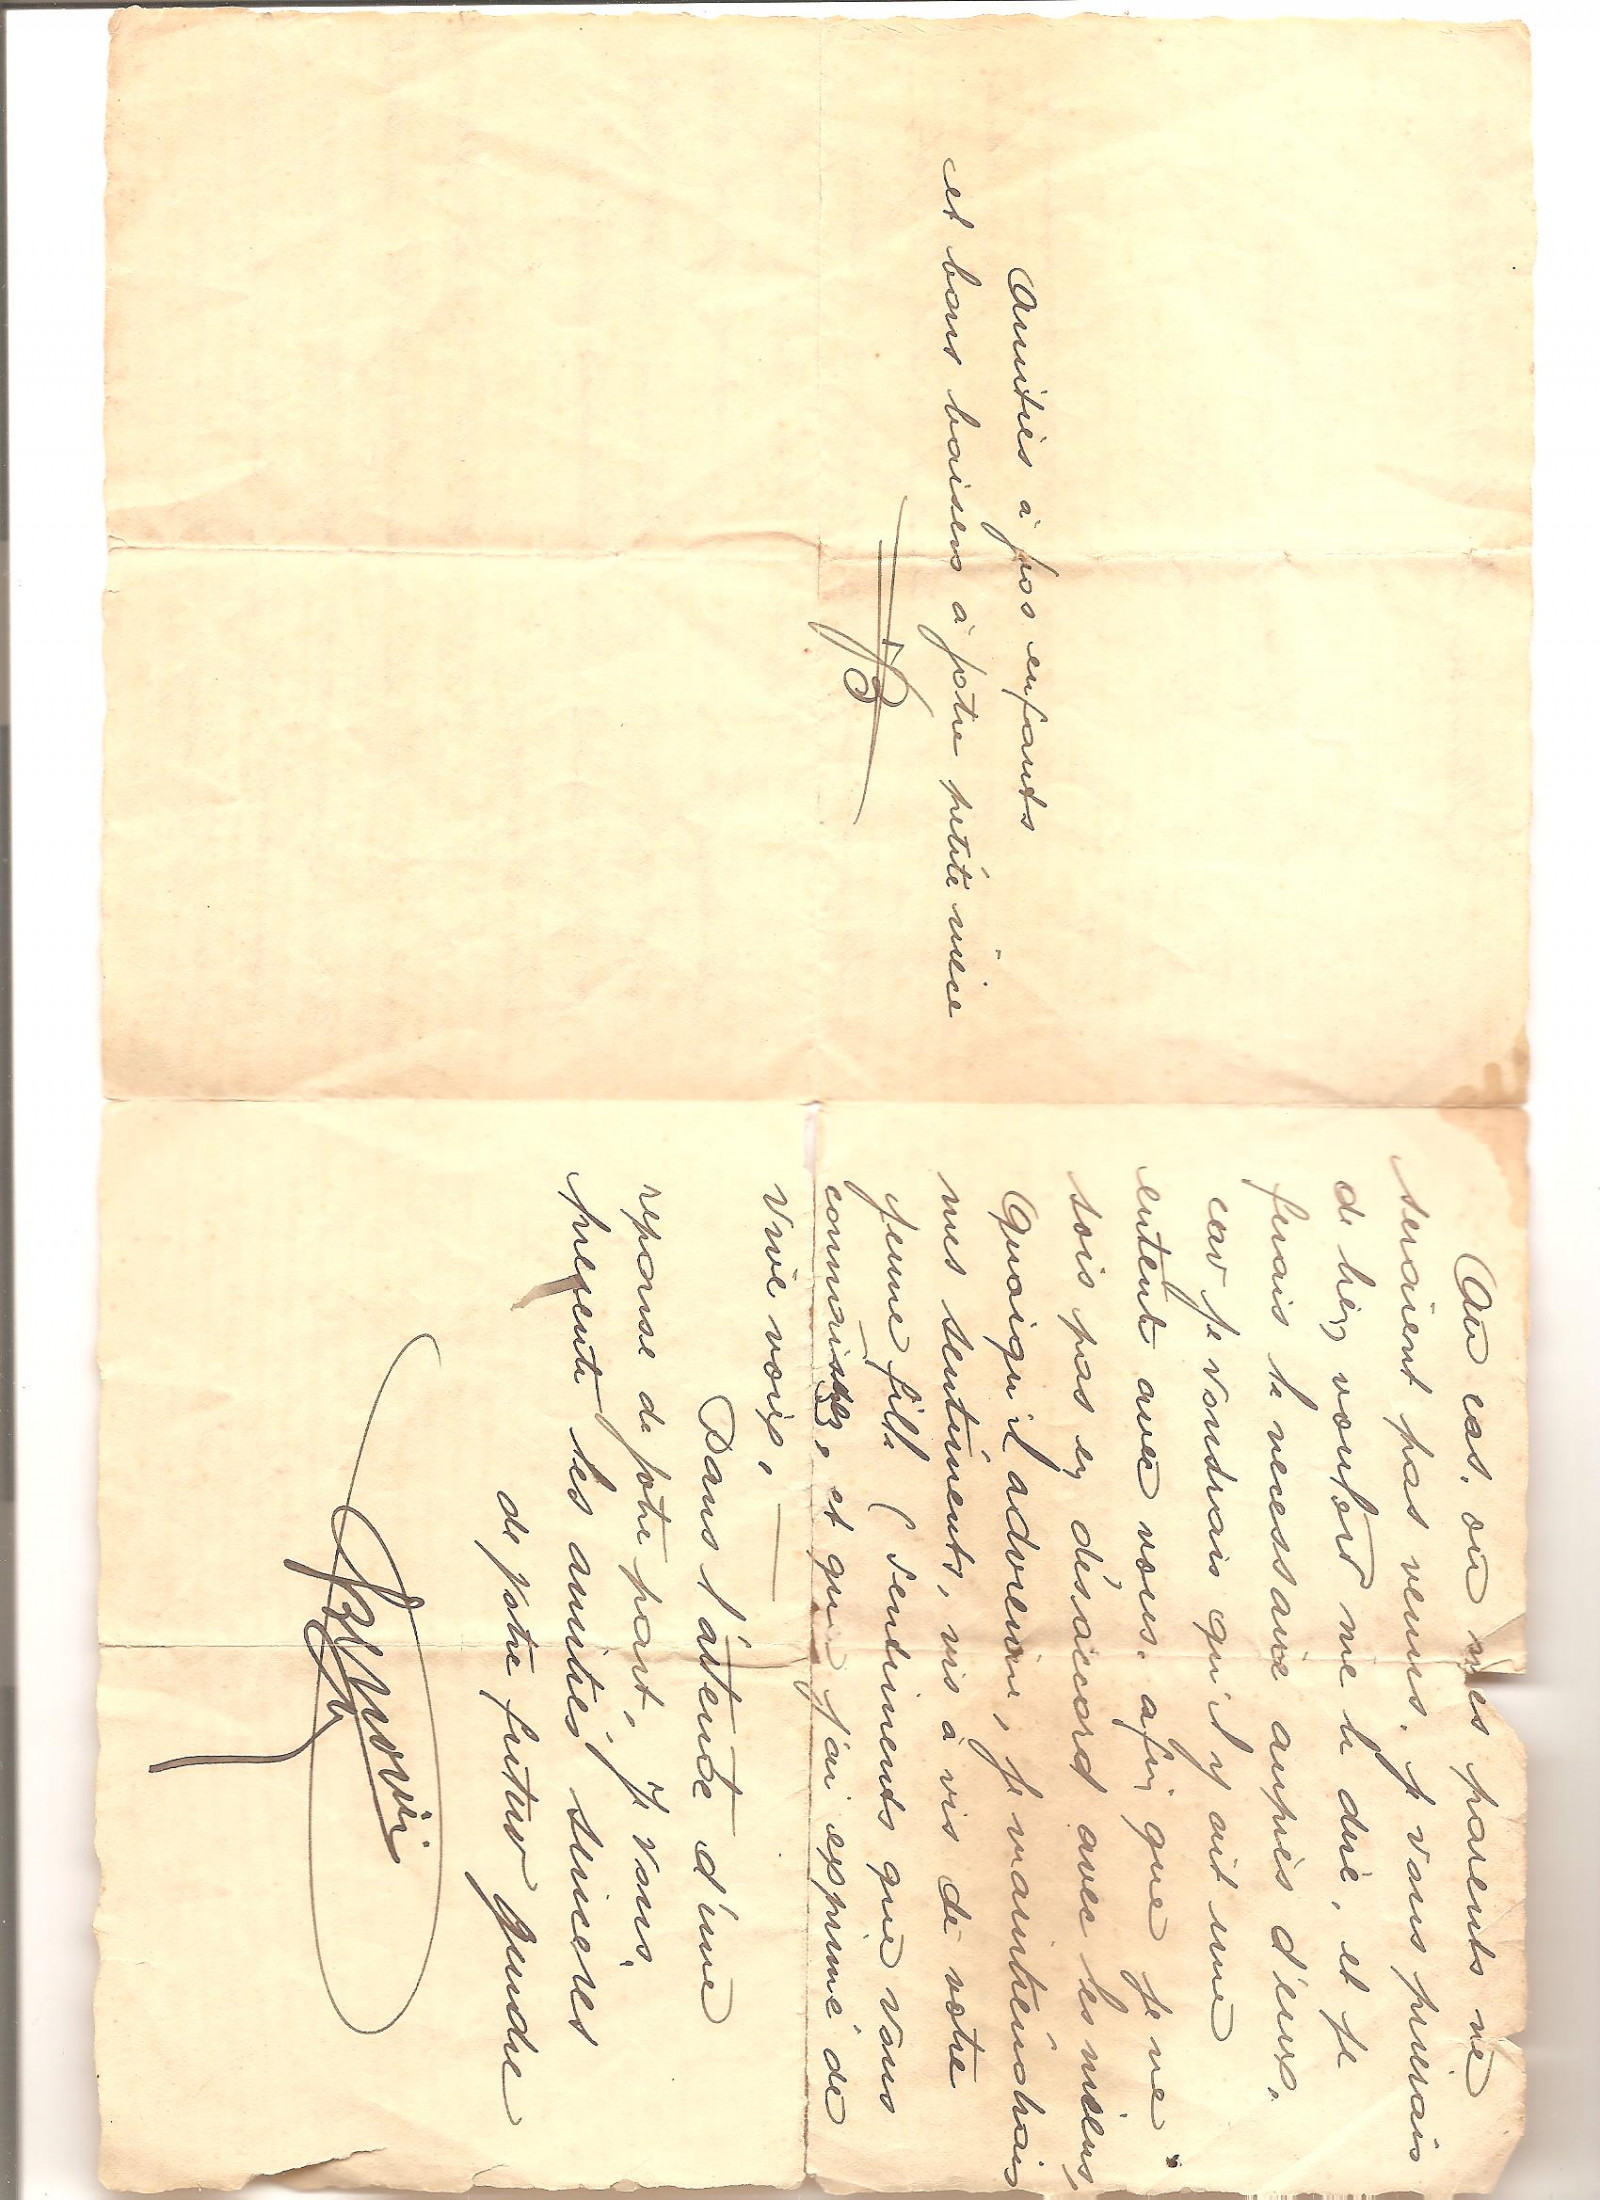 Au cas, où mes parents ne
seraient pas venus. Je vous prierais
de bien vouloir me le dire, et je
ferais le necessaire auprès d'eux.
car je voudrais qu'il y ait une
entente avec vous. afin que je ne
sois pas en désaccord avec les miens,
Quoiqu'il advienne, je maintiendrais
mes sentiments, vis à vis de votre
jeune fille (sentiments que vous
connaissez, et que j'ai exprimé de
vive voix.
Dans l'attente d'une
reponse de votre part, Je vous
presente les amitiés sinceres
de votre futur gendre
Amitiés à vos enfants
et bons baisers à votre petite nièce